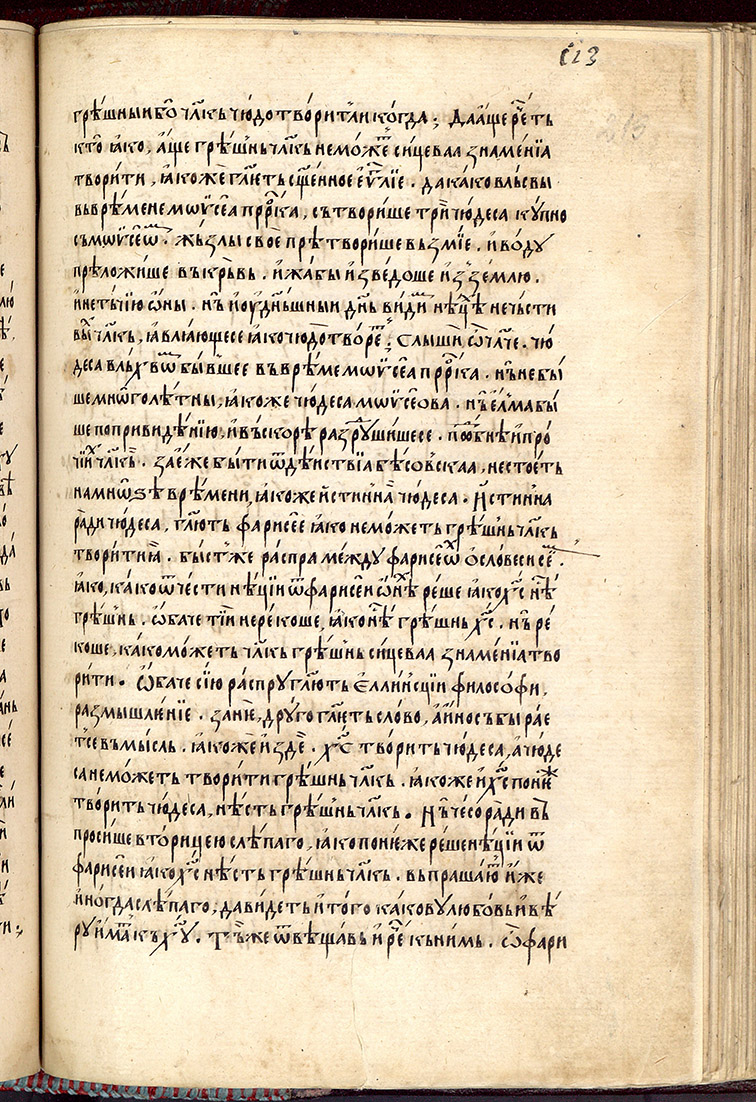 213
213
грѣ́шныи бо҇ чл҃кь чю́дотвори́тли ко́гда; Да а́ще рече́ть
кто̀ ꙗ҆́ко, а҆́ще грѣ́шнь чл҃кь не мо́же сицеваа зна́менїа
твори́ти, ꙗ҆́коже гл҃еть сщ҃е́нное є҆ѵⷢ҇лїе. да ка́ко влъсвы
вь врѣ́мене мѡѵ̈се́а прⷪ҇ро́ка, сътвори́ше трѝ чю́деса ку́пно
съ мѡѵ̈се́ѡⷨ. жь́злы своѐ прѣ́твори́ше вь змїе. и҆ во́ду
прѣло́жише вь крь́вь. и҆ жа́бы и҆зведо́ше и҆з зе́млю.
и҆ не тъ́чїю ѡ҆́ны. нь̀ и҆ ѹ҆ дн҃ѣшныи дн҃ь ви́диⷨ нѣ́цїе нечъсти
вы́ чл҃кь, ꙗ҆вла́ющесе ꙗ҆́ко чюдотво́рⷰ҇е. Слы́ши ѡ҆̀ чл҃че. чю́
деса вль́хвѡⷨ бы́вшее вь врѣ́ме мѡѵ̈се́а прⷪ҇ро́ка. нь̀ не бы́
ше мнѡ́голѣ́тны, ꙗ҆́коже чю́деса мѡѵ̈се́ова. нь̀ є҆лма бы́
ше по приви́дѣ́нїю, и҆ въскорѣ ра́зрꙋ́шишесе. подо́бнѣ и҆ про́
чїиⷯ чл҃кь. за є҆́же бы́ти ѿ дѣ́иствїа бѣ́совскаа, не стое́ть
на мнѡ́sѣ врѣ́мени, ꙗ҆́коже и҆ сти́ннаа чю́деса. И҆стинна
ра́ди чю́деса, гл҃ють фарисе́е ꙗ҆́ко не мо́жеть грѣ́шнь чл҃кь
твори́ти ꙗ҆̀. бы́стⷤже ра́спра ме́жду фарисе́ѡⷯ о҆ сло́веси сеⷨ.
ꙗ҆́ко, ка́ко ѿ че́сти нѣ́цїи ѿ фарисе́и ѡ҆́нѣⷯ ре́ше ꙗ҆́ко хⷭ҇с нѣⷭ҇
грѣ́шнь. ѡ҆́баче тїи не реко́ше, ꙗ҆́ко нѣⷭ҇ грѣ́шнь хⷭ҇с. нь̀ ре́
коше, ка́ко мо́жеть чл҃кь грѣ́шнь сицеваа зна́менїа тво
ри́ти. Ѡ҆́баче сїю ра́спру гл҃ють є҆́ллинсцїи фило́софи,
размышле́нїе. занѐ, дру́го гл҃еть сло́во, а҆ и҆́но събира́е
тсе въ мы́сль. ꙗ҆́коже и҆ здѐ. хⷭ҇с твори́ть чю́деса, а҆ чю́де
са не мо́жеть твори́ти грѣ́шнь чл҃кь. ꙗ҆́коже и҆ хⷭ҇с поне́же
твори́ть чю́деса, нѣ́сть грѣ́шнь чл҃кь. Нь̀ чесо̀ ра́ди въ
проси́ше втори́цею слѣ́паго, ꙗ҆́ко поне́же ре́ше нѣ́цїи ѿ
фарисе́и ꙗ҆́ко хⷭ҇с нѣ́сть грѣ́шнь чл҃кь. выпраша́ютⷤ и҆́же
и҆ногда слѣ́паго, да ви́деть и҆ того̀ ка́кову лю́бовь и҆ вѣ́
ру и҆́мать къ хⷭ҇у. Тъ́же ѿвѣща́вь и҆ ре́че кь ни́мь. ѽ фари